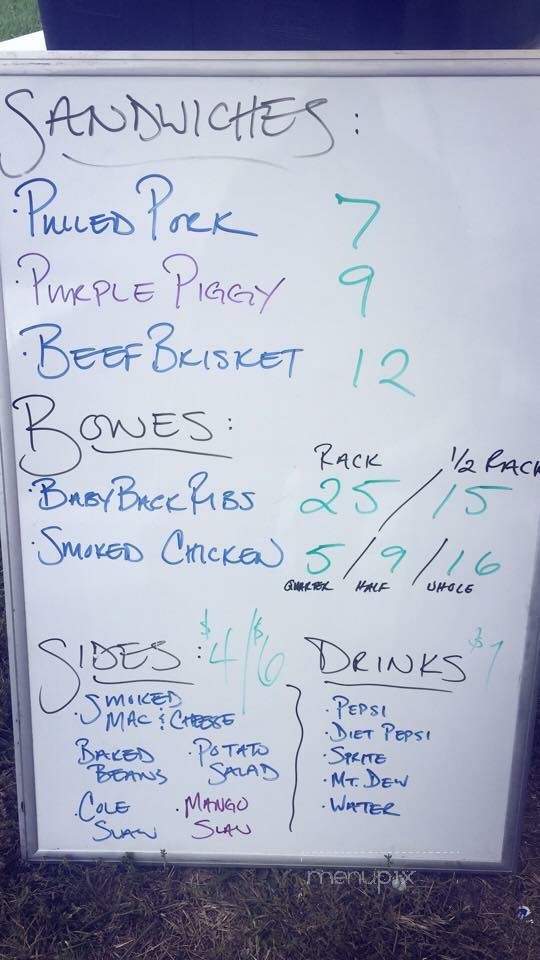 SANDWICHES:
· PULLED PORK 7
· PURPLE PIGGY 9
· BEEF BRISKET 12
BONES:
RACK / 1/2 RACK
· BABY BACK RIBS 25 / 15
· SMOKED CHICKEN 5 / 9 / 16
QUARTER HALF WHOLE
SIDES: $4/$6
· SMOKED
MAC & CHEESE
BAKED
BEANS
· POTATO
SALAD
· COLE
SLAW
· MANGO
SLAW
DRINKS $1
· PEPSI
· DIET PEPSI
· SPRITE
· MT. DEW
· WATER
menupix